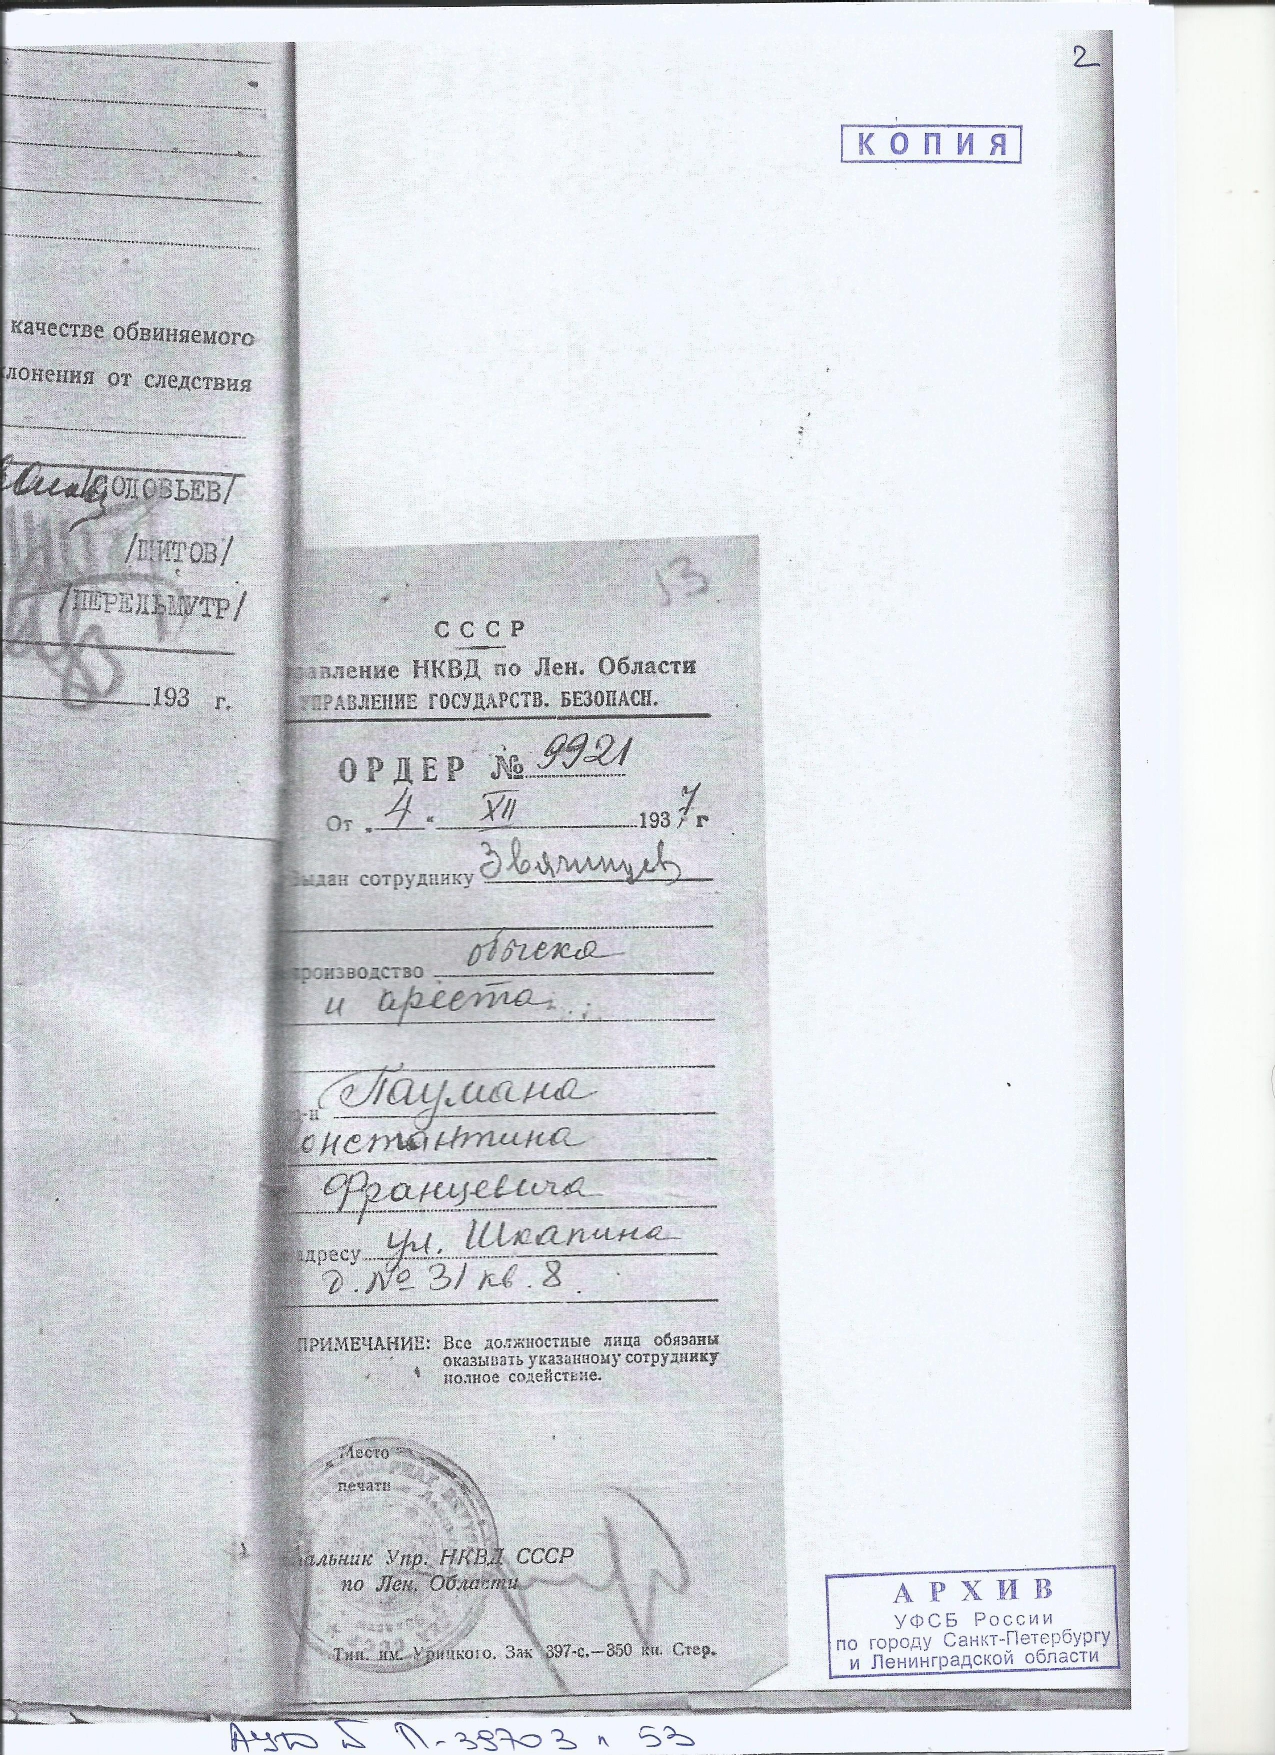 2
КОПИЯ
качестве обвиняемого
лонения от следствия
СОЛОВЬЕВ/
/ТИТОВ/
/ПЕРЕЛЬМУТР/
193 г.
13
СССР
авление НКВД по Лен. Области
УПРАВЛЕНИЕ ГОСУДАРСТВ. БЕЗОПАСН.
ОРДЕР № 9921
От „ 4 “ XII 1937 г
Выдан сотруднику Звягинцев
производство обыска
и ареста
р-н Паумана
онстантина
Францевича
адресу ул. Шкапина
д. № 31 кв. 8.
ПРИМЕЧАНИЕ: Все должностные лица обязаны
оказывать указанному сотруднику
полное содействие.
Место
печати
альник Упр. НКВД СССР
по Лен. Области
Тип. им. Урицкого. Зак 397-с.—350 кн. Стер.
АРХИВ
УФСБ России
по городу Санкт-Петербургу
и Ленинградской области
П-38703 л 53